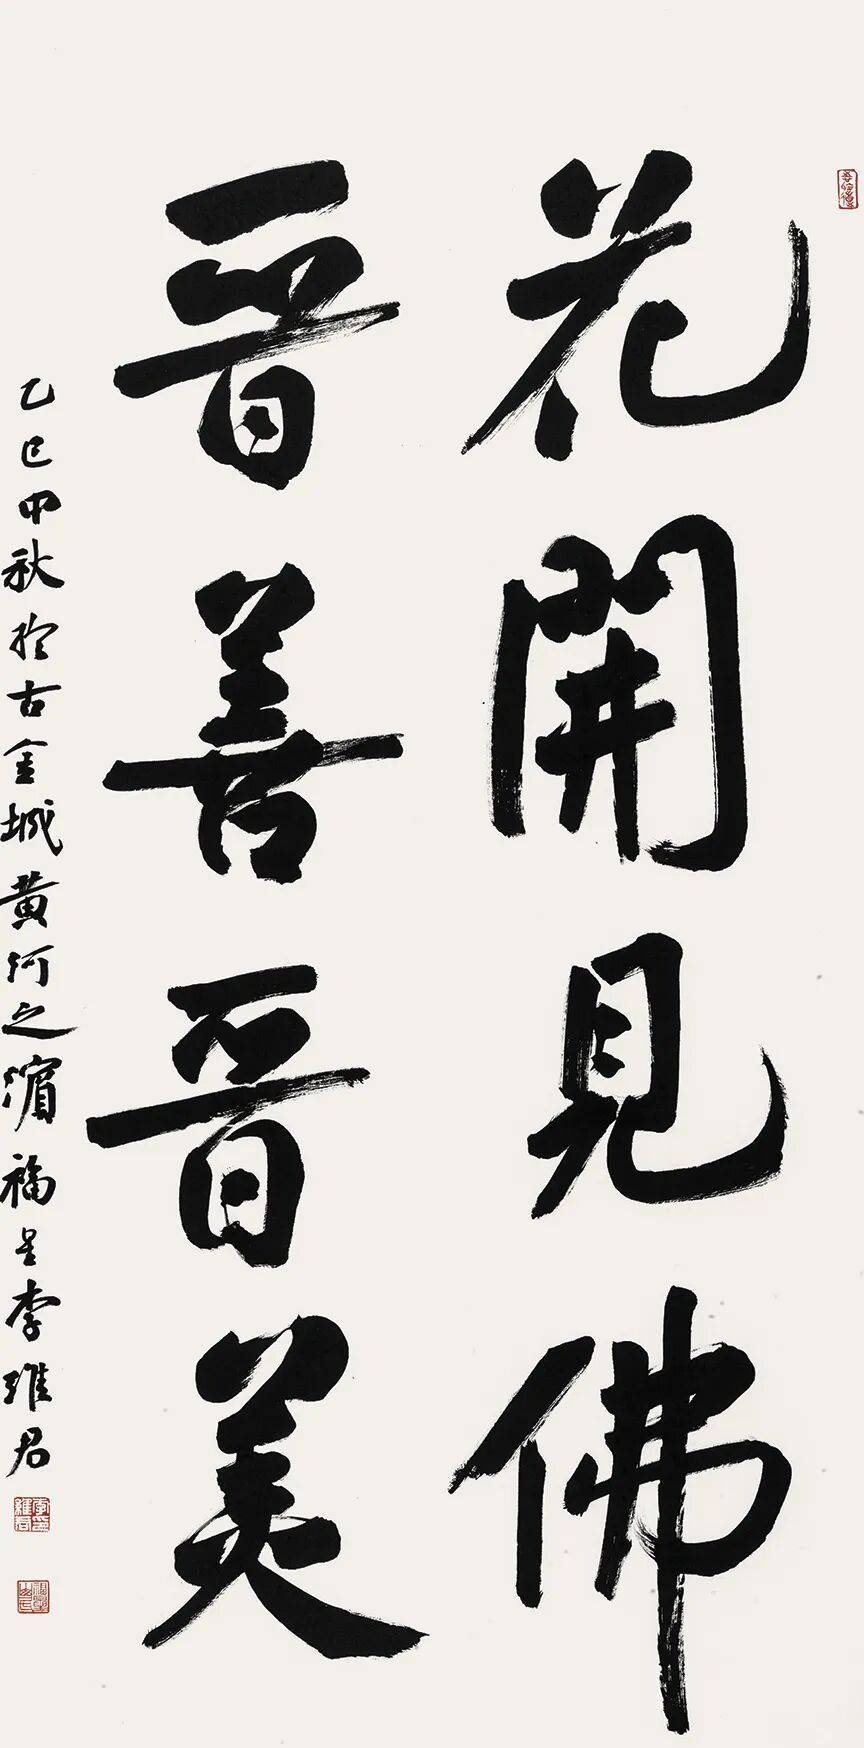 花開見佛
晋善晋美
乙巳中秋於古金城黄河之濵福星李維君